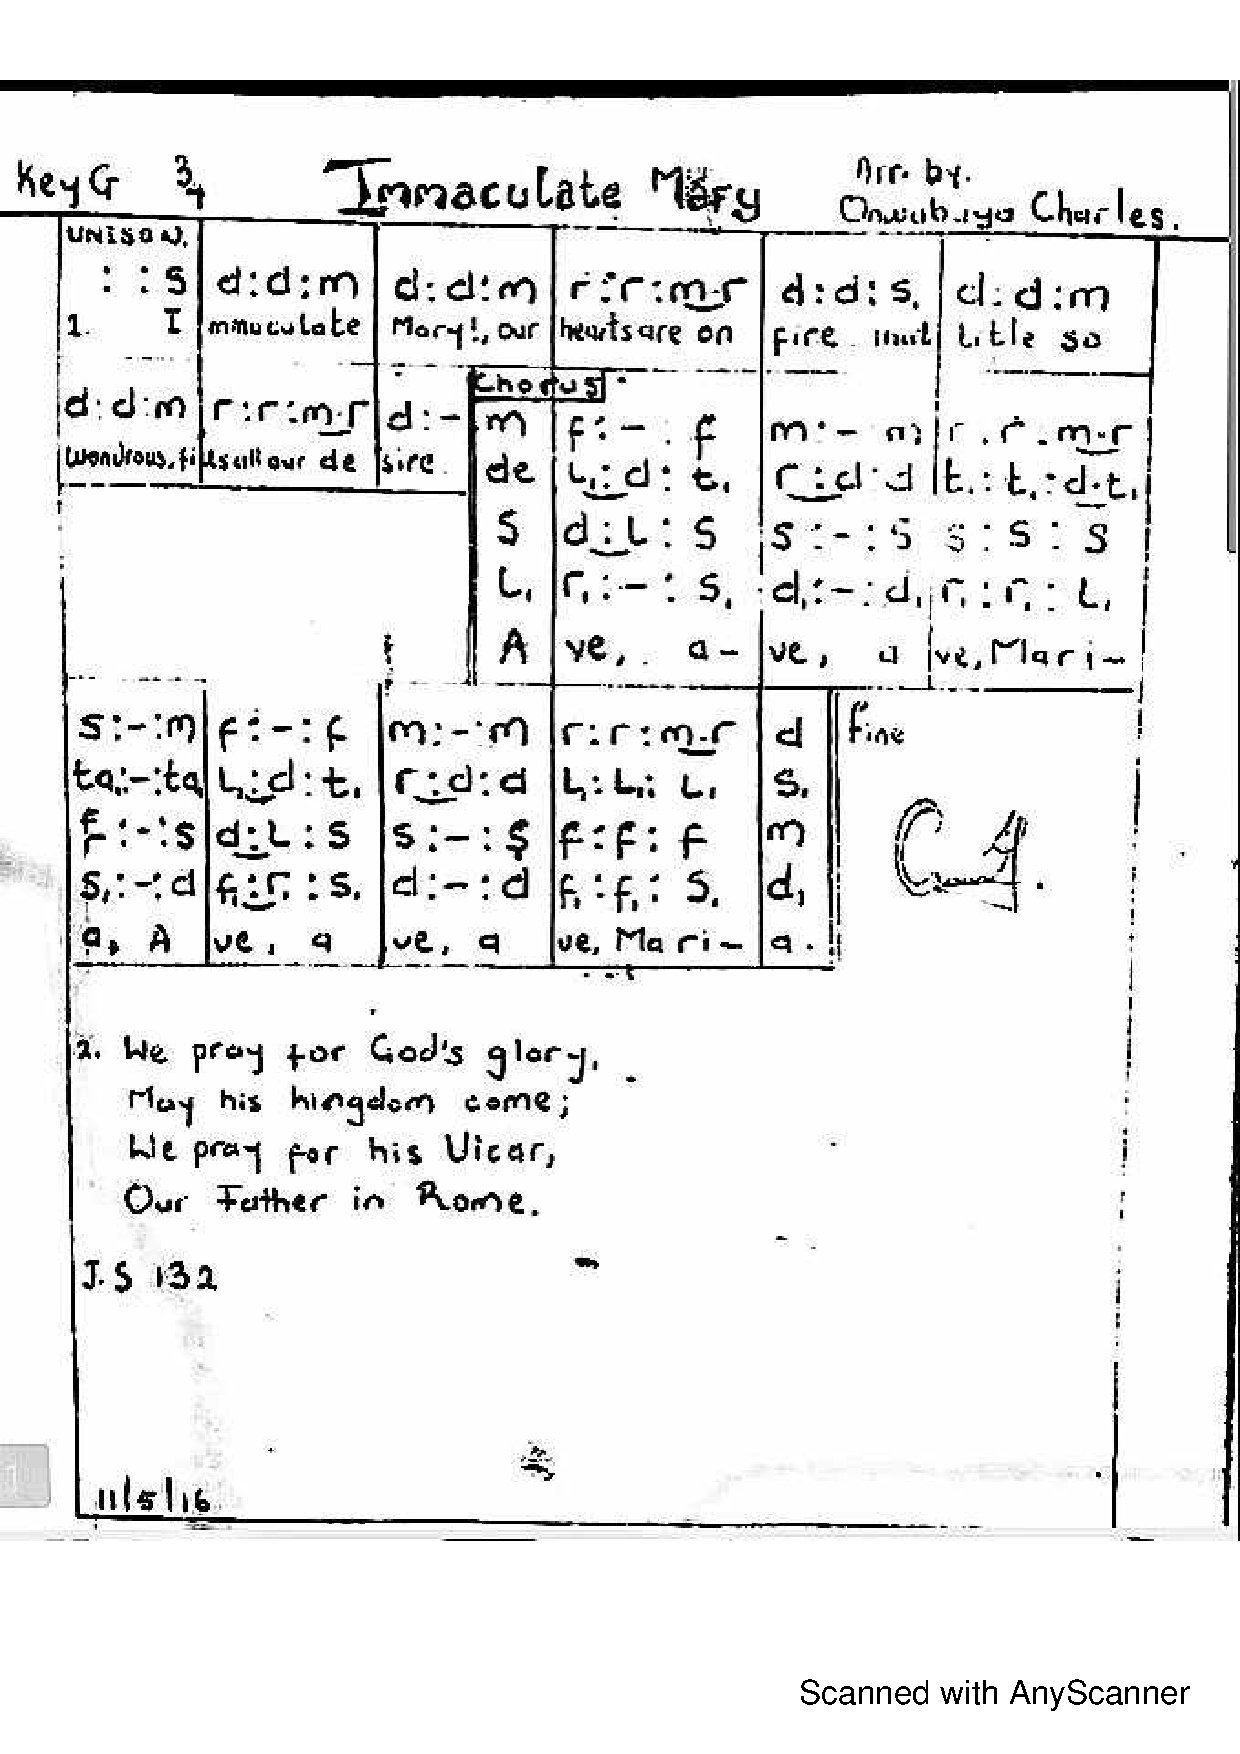 Key G 3/4 Immaculate Mary Arr. by.
Charles.
UNISON.
: : s | d : d : m | d : d : m | r : r : m.r | d : d : s, | d : d : m
1. I mmaculate Mary!, our hearts are on fire title so
d : d : m | r : r : m.r | d : -
wondrous, fills all our de sire.
Chorus
m | f : - : f | m : - : m | r : r : m.r
de | l, : d : t, | r : d : d | t, : t, : d.t,
s | d : l : s | s : - : s | s : s : s
l, | r, : - : s, | d, : - : d, | r, : r, : l,
A ve, a - ve, a ve, Mari -
s : - : m | f : - : f | m : - : m | r : r : m.r | d
ta, : - : ta, | l, : d : t, | r : d : d | l, : l, : l, | s,
f : - : s | d : l : s | s : - : s | f : f : f | m
s, : - : d | f, : r, : s, | d : - : d | f, : f, : s, | d,
a, A ve, a ve, a ve, Ma ri - a.
fine
2. We pray for God's glory,
May his kingdom come;
We pray for his Vicar,
Our Father in Rome.
J.S 132
11/5/16
Scanned with AnyScanner